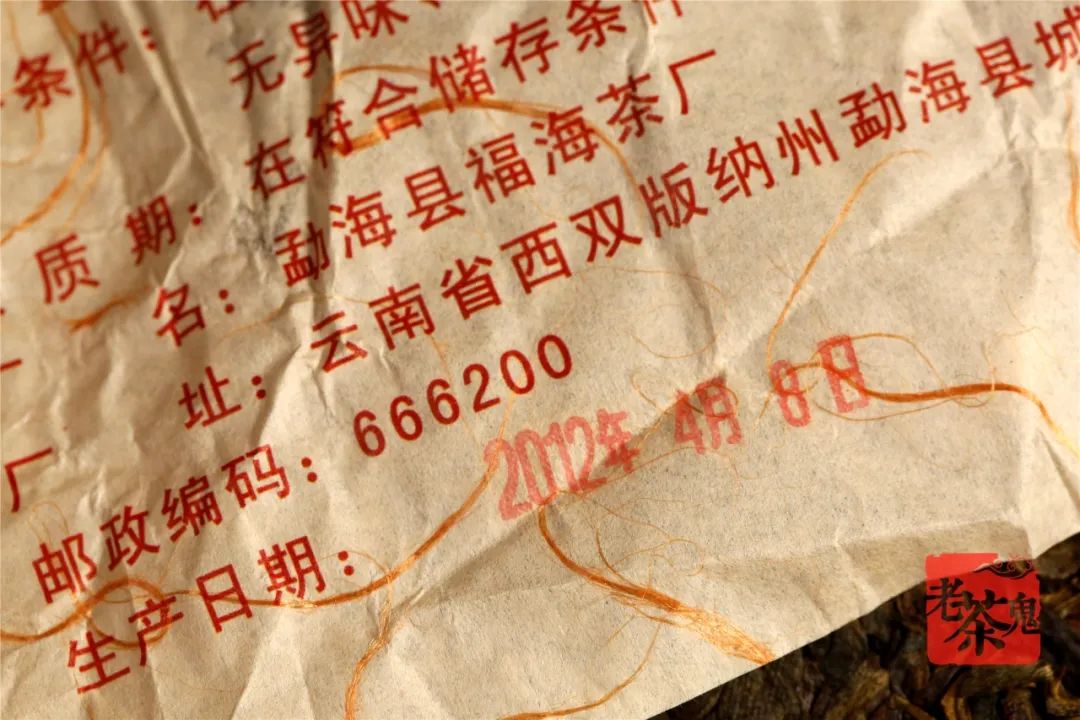 条件：
无异味
质 期：在符合储存条件
名：勐海县福海茶厂
厂 址：云南省西双版纳州勐海县城
邮政编码：666200
生产日期：2012年 4月 8日
老茶鬼